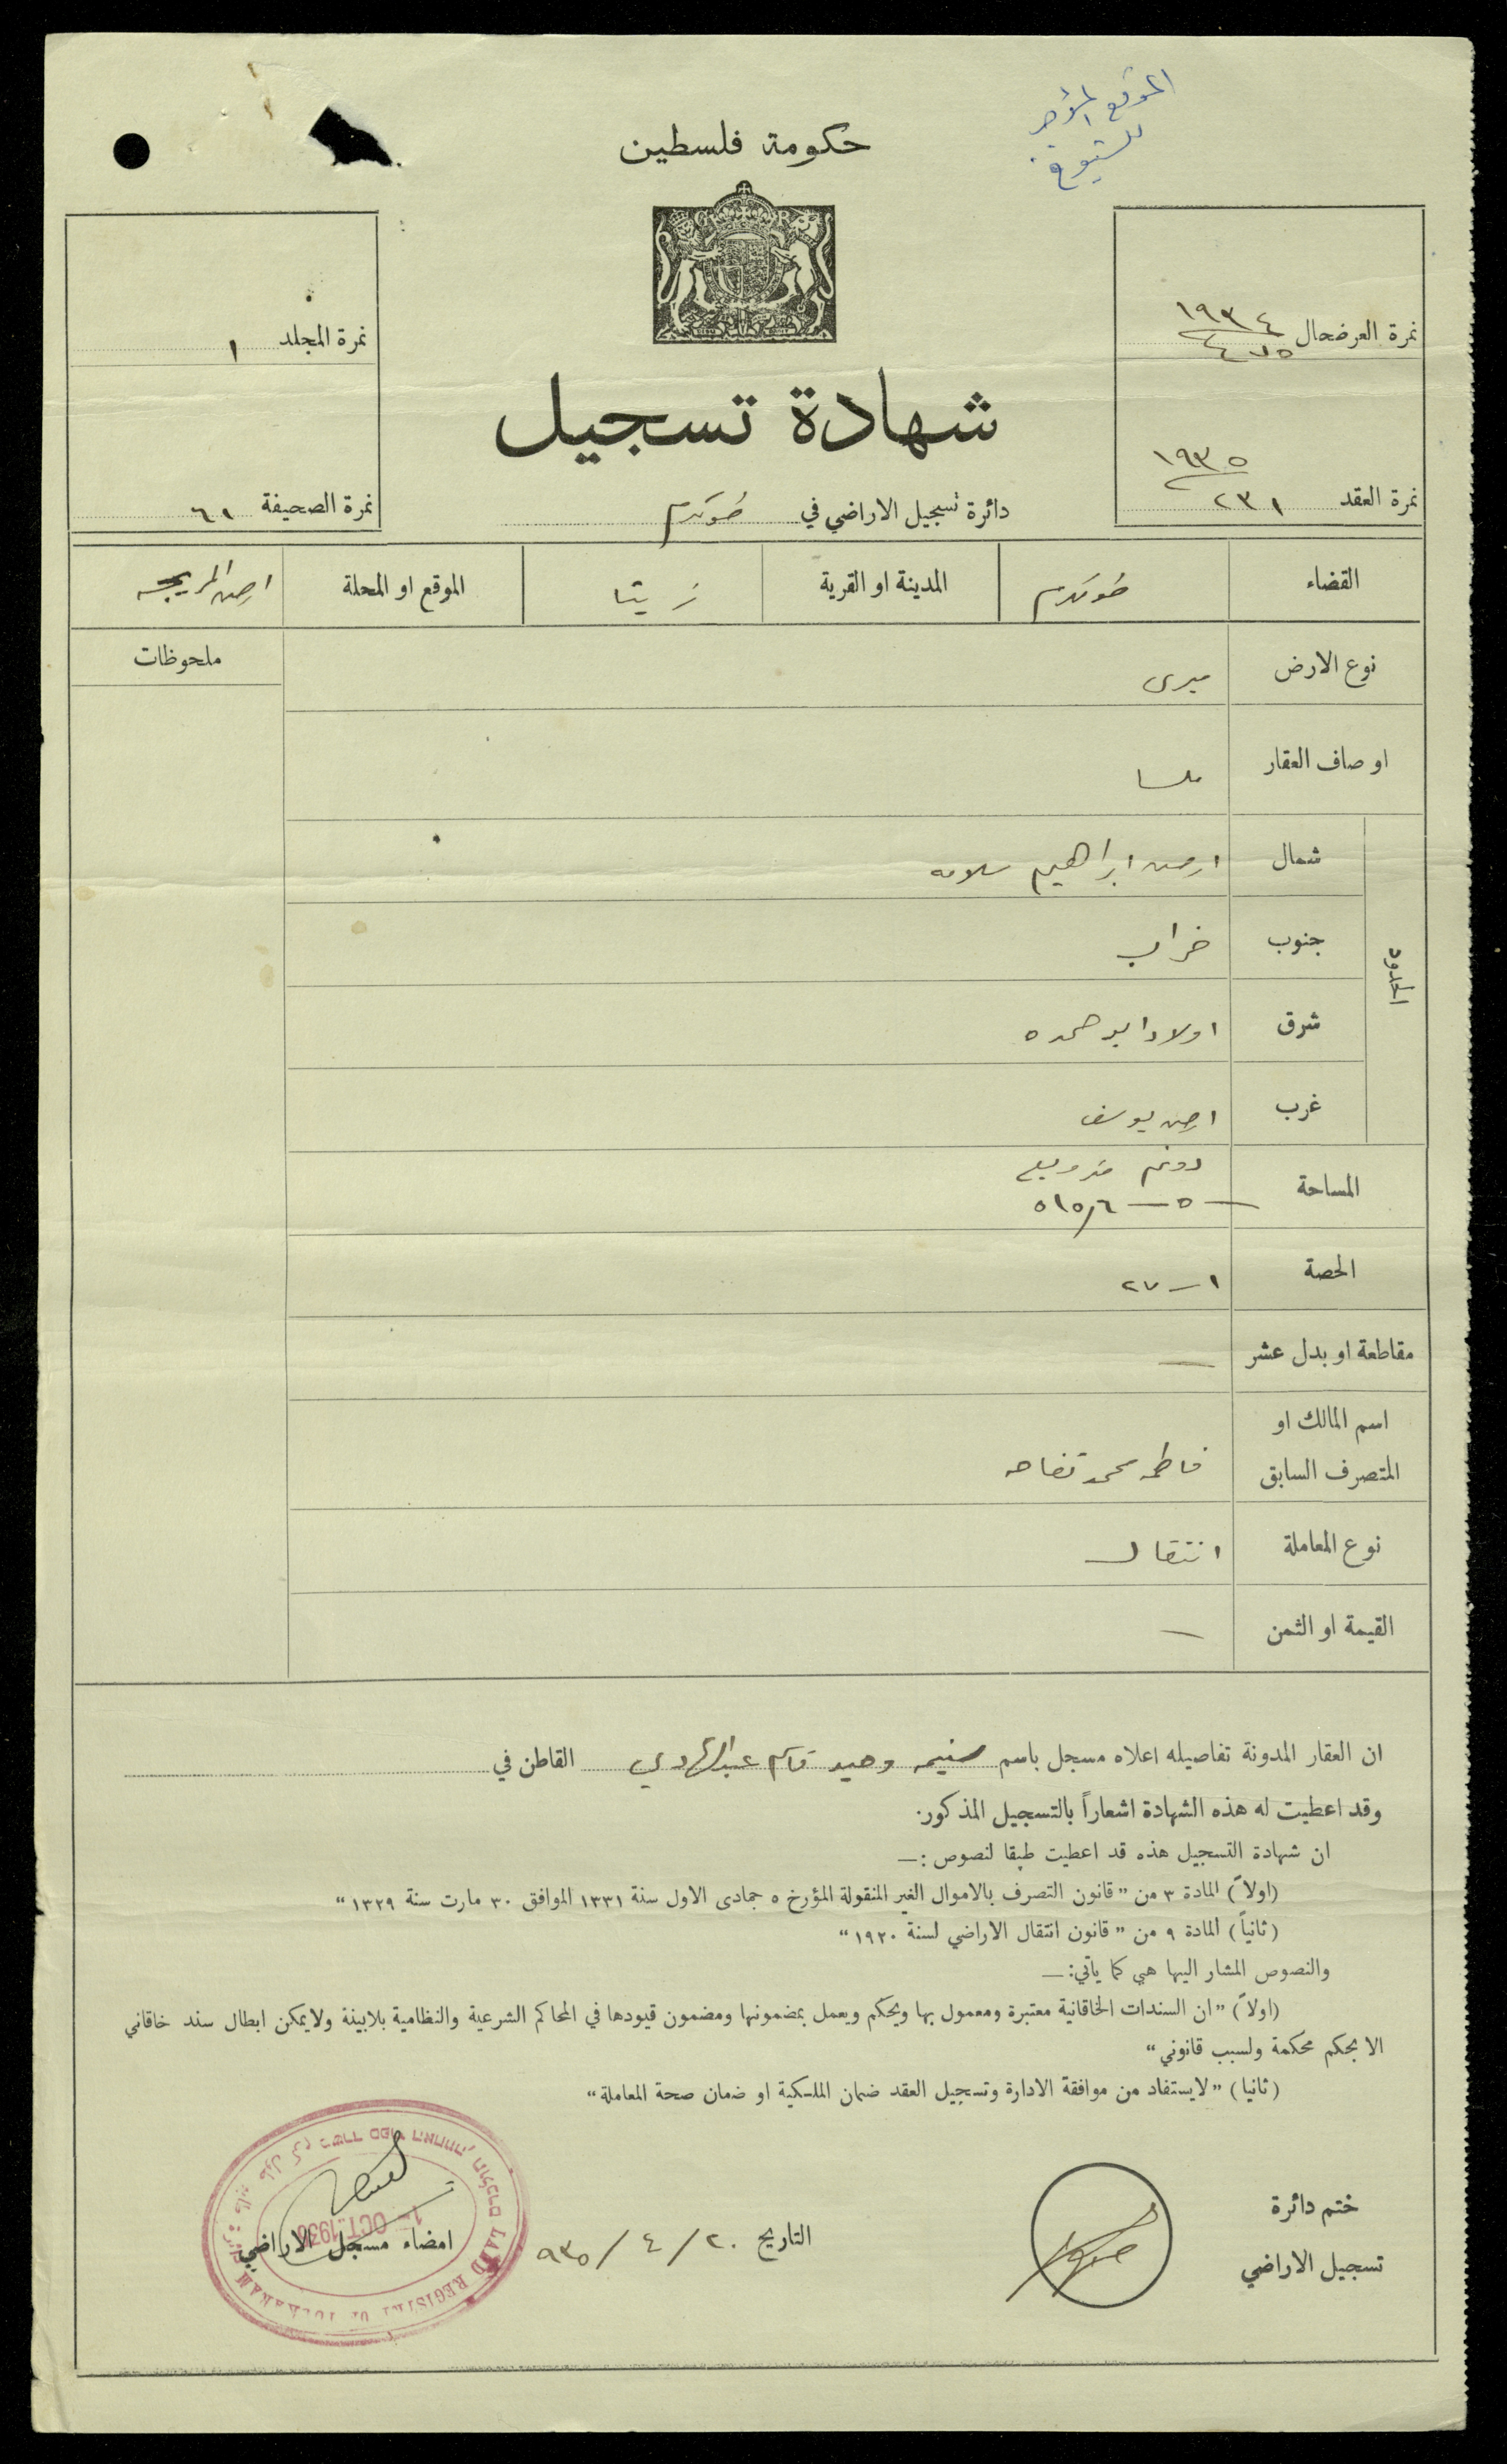 الموقع المؤجر
للشيوخ
حكومة فلسطين
نمرة العرضحال ١٩٣٤ / ٤٧٥
نمرة المجلد ١
شهادة تسجيل
نمرة العقد ١٩٣٥ / ٢٣١
دائرة تسجيل الاراضي في طولكرم
نمرة الصحيفة ٦١
القضاء طولكرم المدينة او القرية زيتا الموقع او المحلة ارض المريجه
ملحوظات
نوع الارض ميرى
اوصاف العقار ملسا
الحدود
شمال ارض ابراهيم سلامه
جنوب خراب
شرق اولاد ابو حمده
غرب ارض يوسف
المساحة دونم متر مربع
٥ — ٥١٥٫٦
الحصة ١ — ٢٧
مقاطعة او بدل عشر —
اسم المالك او
المتصرف السابق فاطمه محمد تفاحه
نوع المعاملة انتقال
القيمة او الثمن —
ان العقار المدونة تفاصيله اعلاه مسجل باسم سنيه وحيد قاسم عبد الهادي القاطن في
وقد اعطيت له هذه الشهادة اشعاراً بالتسجيل المذكور.
ان شهادة التسجيل هذه قد اعطيت طبقا لنصوص :—
(اولاً) المادة ٣ من ” قانون التصرف بالاموال الغير المنقولة المؤرخ ٥ جمادى الاول سنة ١٣٣١ الموافق ٣٠ مارت سنة ١٣٢٩ “
(ثانياً) المادة ٩ من ” قانون انتقال الاراضي لسنة ١٩٢٠ “
والنصوص المشار اليها هي كما يأتي :—
(اولاً) ” ان السندات الخاقانية معتبرة ومعمول بها ويحكم ويعمل بمضمونها ومضمون قيودها في المحاكم الشرعية والنظامية بلابينة ولايمكن ابطال سند خاقاني
الا بحكم محكمة ولسبب قانوني “
(ثانيا) ” لايستفاد من موافقة الادارة وتسجيل العقد ضمان الملكية او ضمان صحة المعاملة “
ختم دائرة
تسجيل الاراضي
التاريخ ٢٠ / ٤ / ٩٣٥
امضاء مسجل الاراضي
LAND REGISTRY OF TULKARAM
1 - OCT. 193